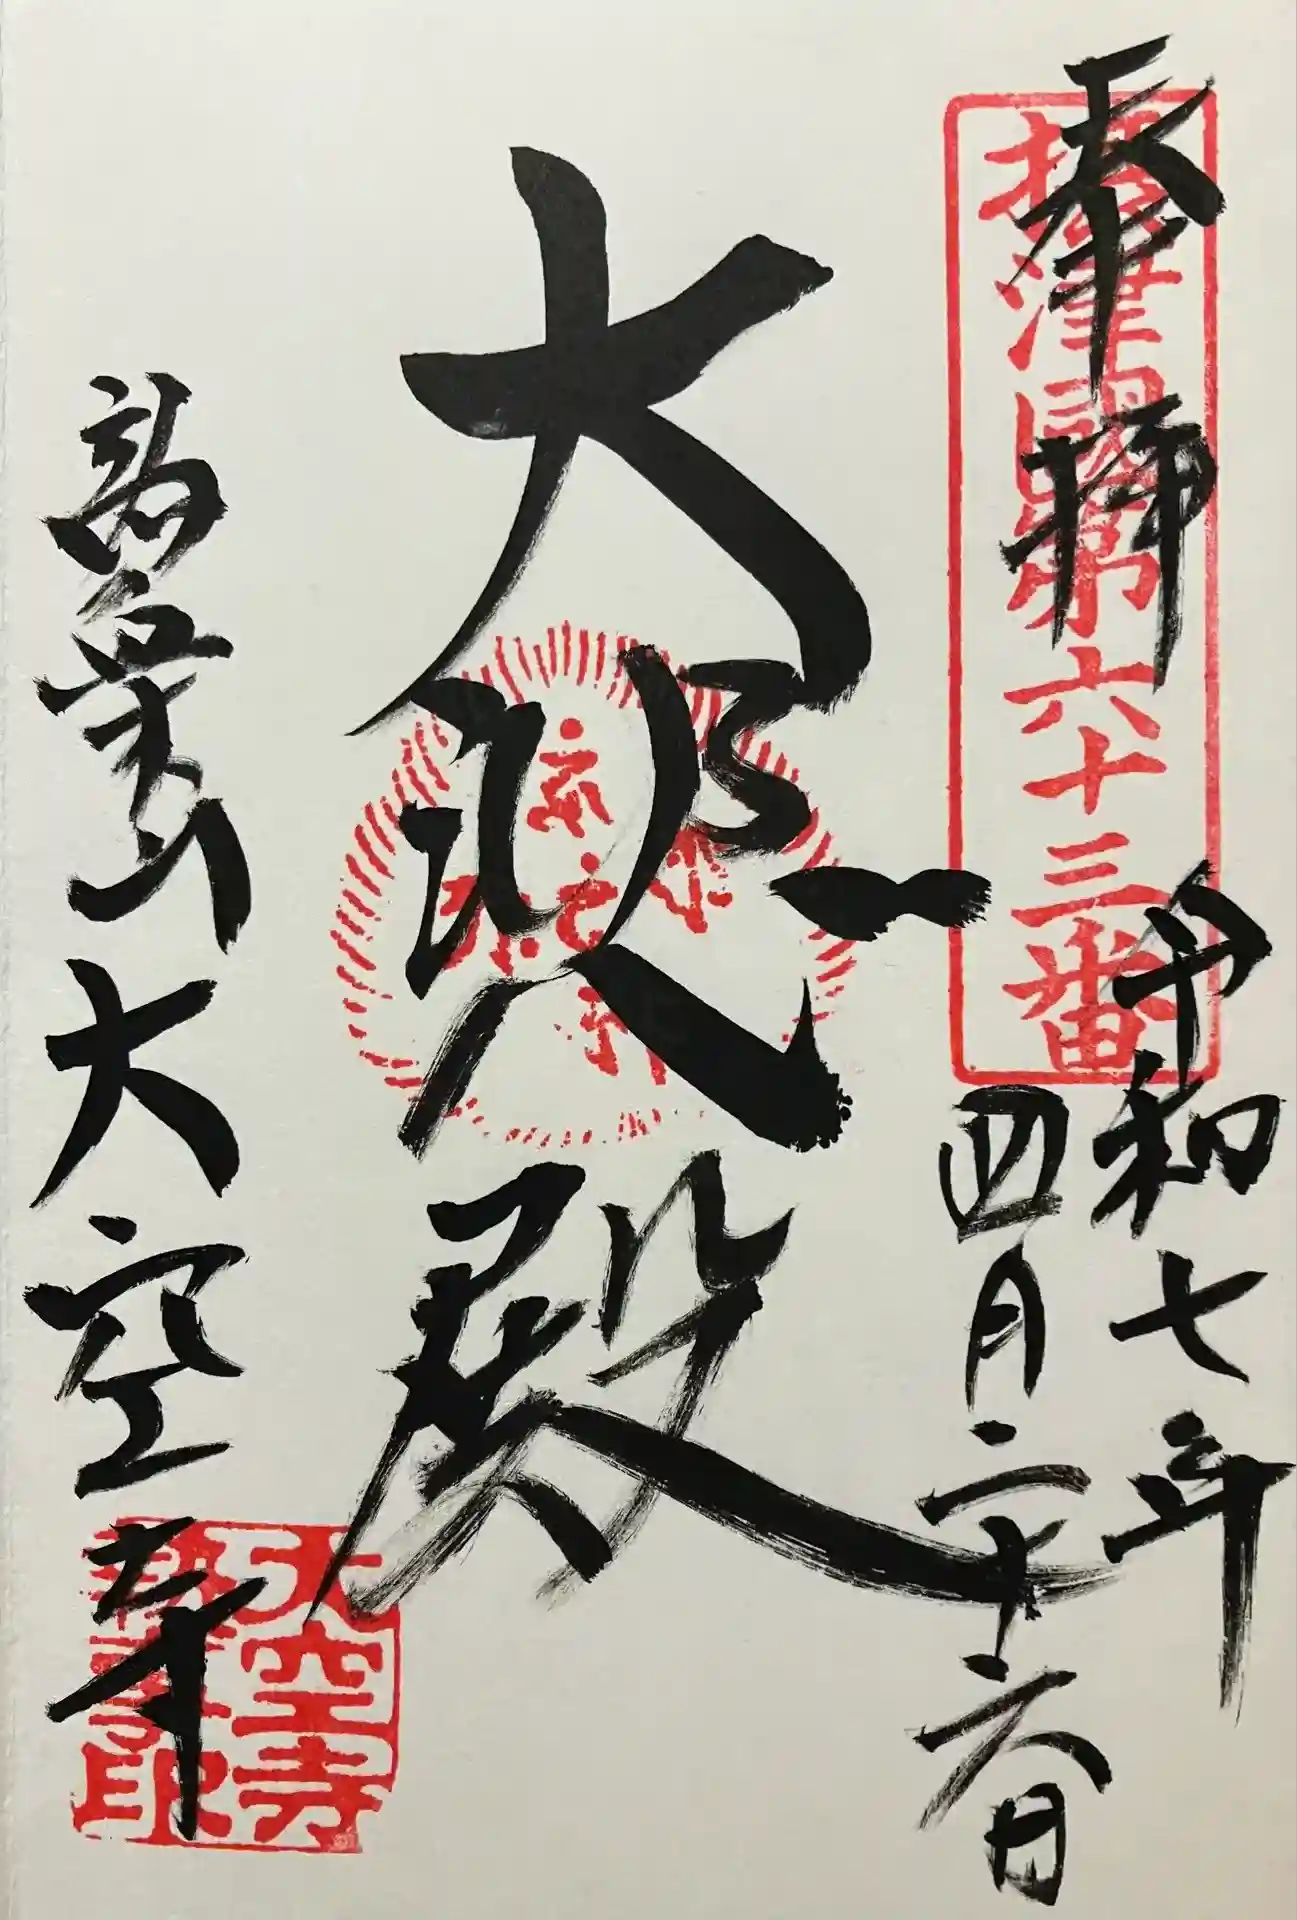 奉拝
摂津國第六十三番
令和七年
四月二十六日
大悲殿
山大空寺
大空寺
執事印